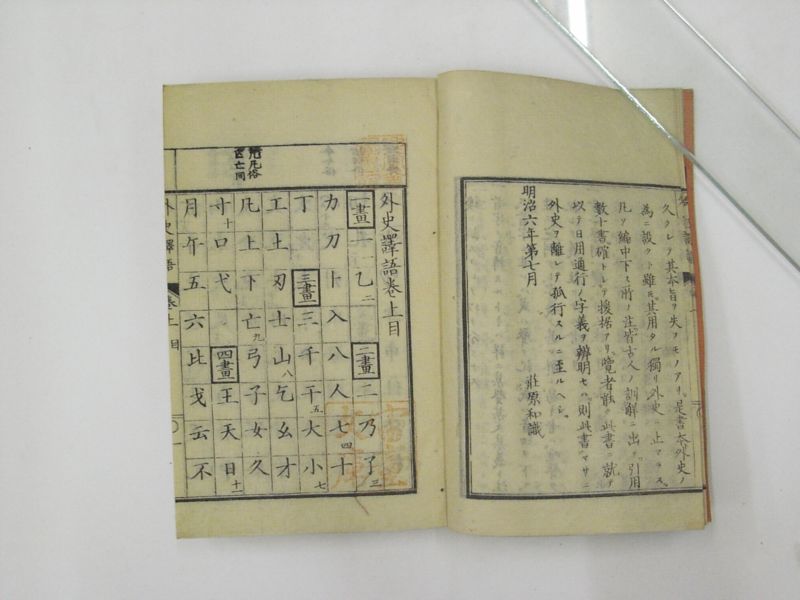 久クレテ其本旨ヲ失フモノアリ是書本外史ノ
為ニ設クト雖㆑其用タル獨リ外史ニ止マラス
凡ソ編中下ス所ノ注皆古人ノ訓解ニ出ツ引用
數十書確トレテ援据アリ覽者能ク此書ニ就テ
以テ日用通行ノ字義ヲ辨明セハ則此書マサニ
外史ヲ離レテ孤行スルニ至ルヘシ
明治六年第七月 莊原和識
外史譯語卷上目
一畫 一 一 乙 二 二畫 二 乃 了 三
力 刀 卜 入 八 人 七 四 十
丁 三畫 三 千 干 五 大 小 七
工 土 刃 士 山 八 乞 幺 才
凡 上 下 亡 九 弓 子 女 久
寸 十 口 弋 四畫 王 天 日 十一
月 午 五 六 比 戈 云 不
外史譯語 卷上 目